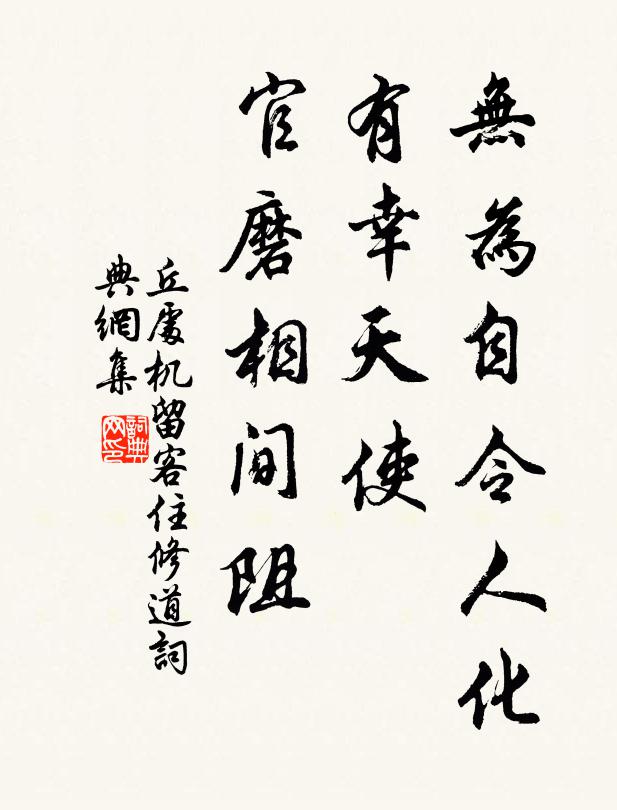 無為自令人化
有幸天使
官磨相間阻
丘處机留客住修道詞
典網集
詞典網印